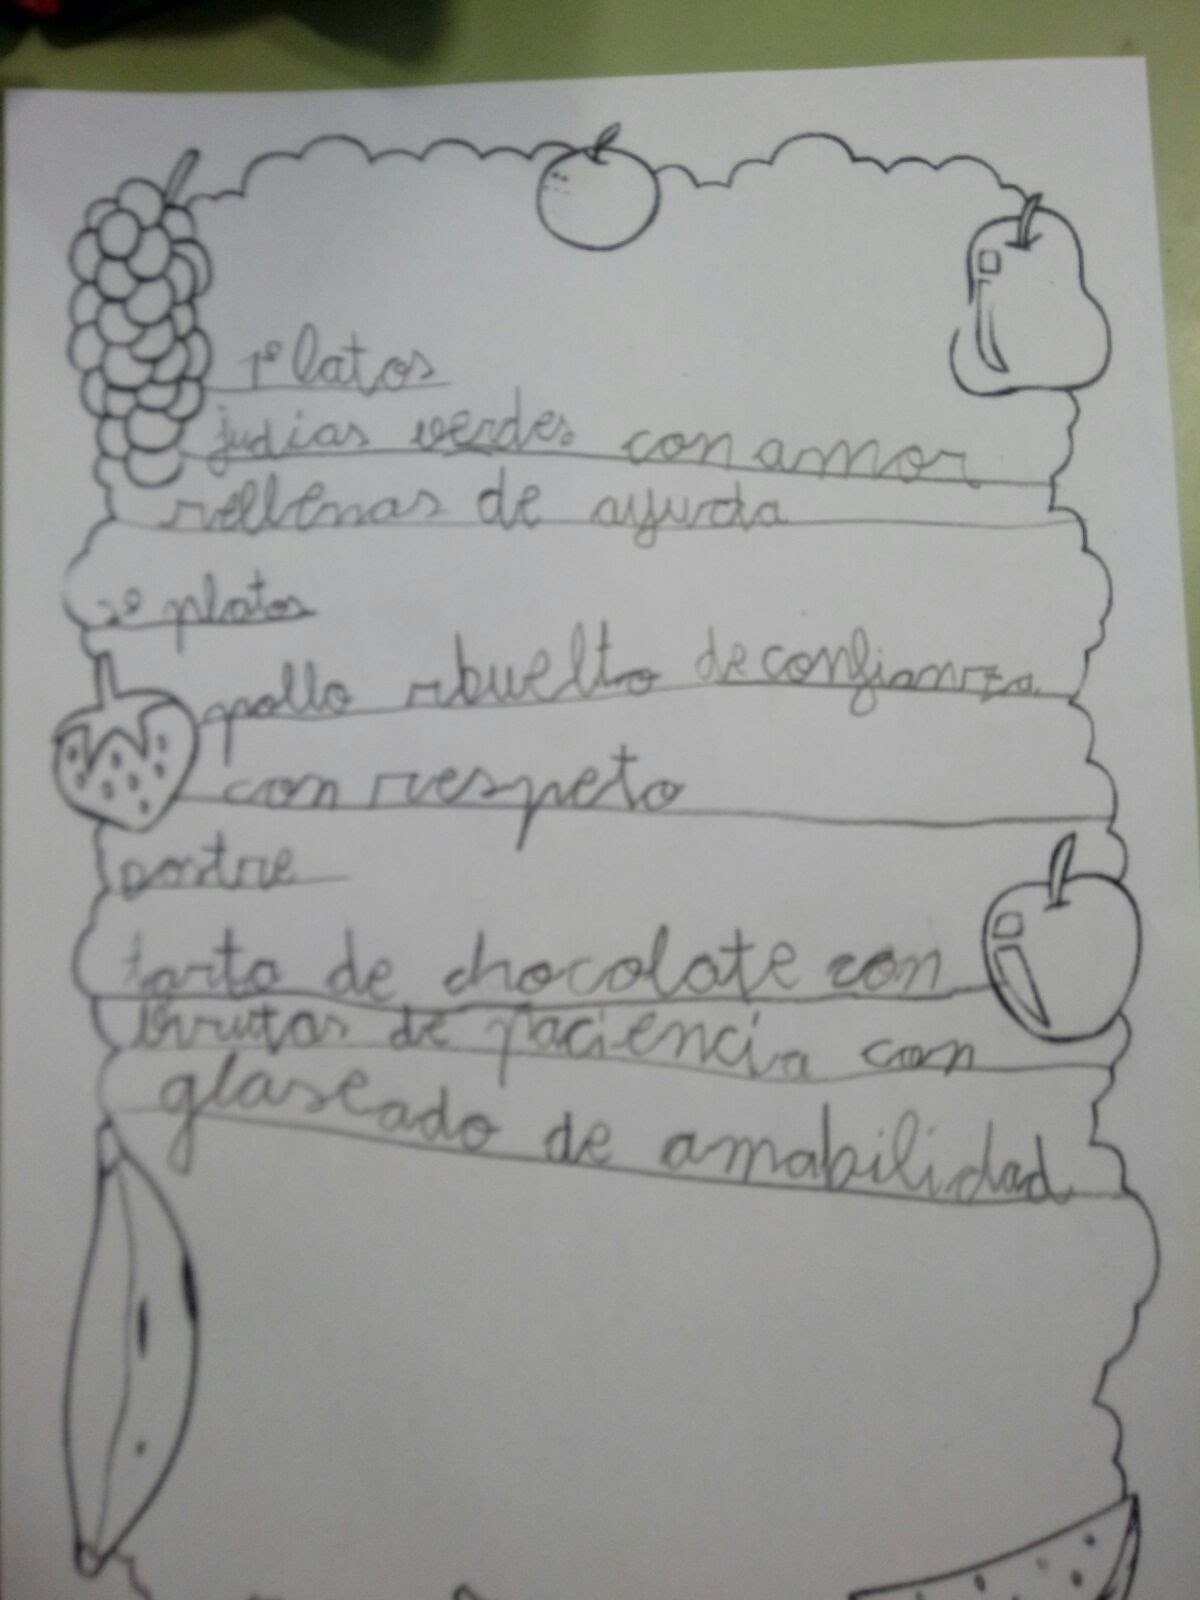 1º latos
judias verdes con amor
rellenas de ayuda
2º platos
pollo rbuelto de confianza
con respeto
postre
tarta de chocolate con
frutas de paciencia con
glaseado de amabilidad